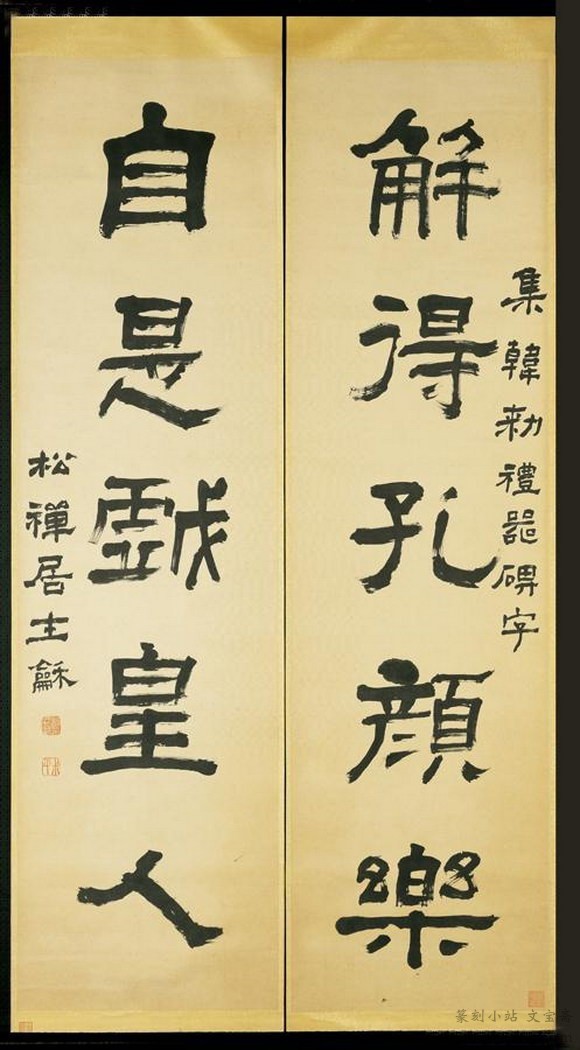 集韓勑禮器碑字
解得孔顏樂
自是戯皇人
松禪居士龢
篆刻小站 文宝